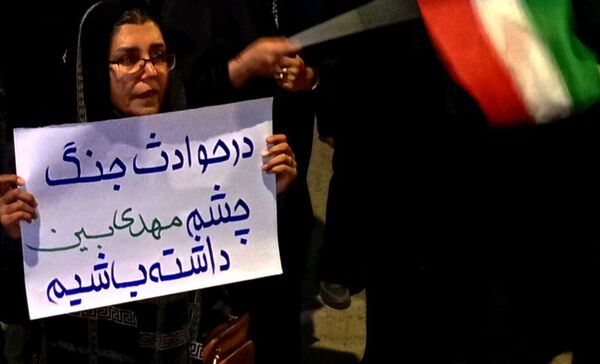 در حوادث جنگ
چشم مهدی بین
داشته باشیم